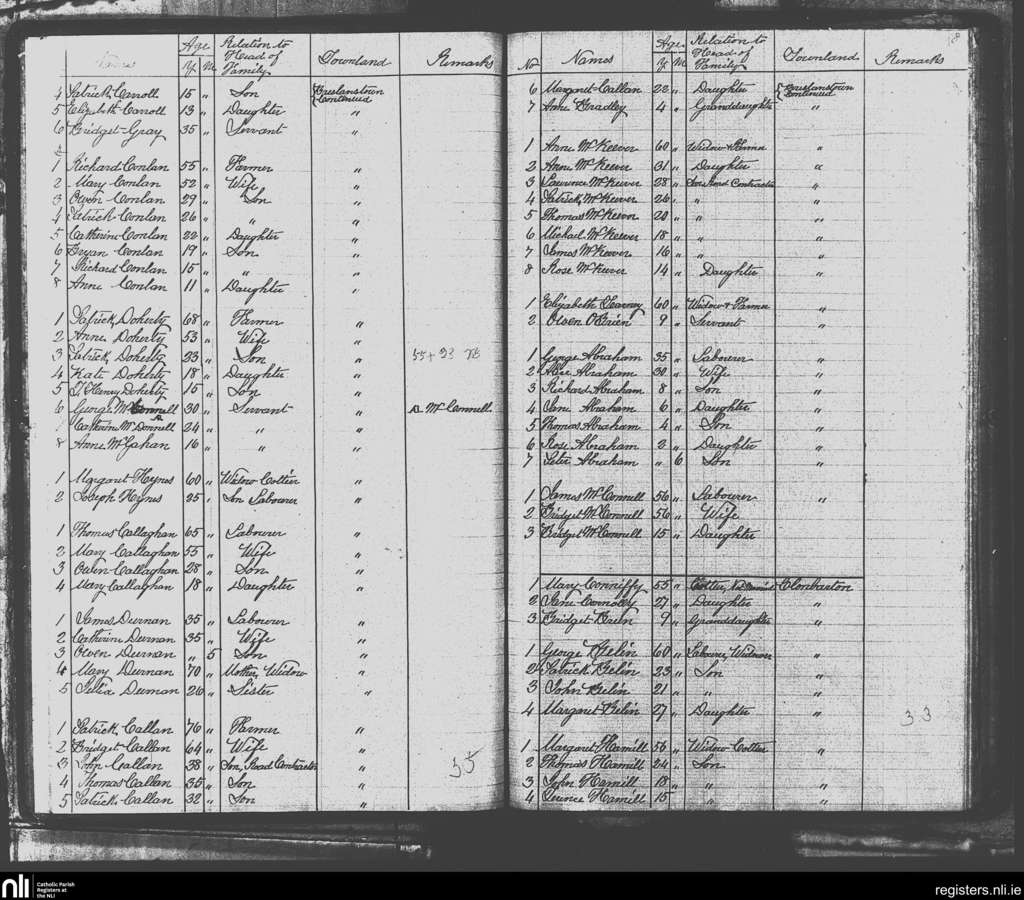 Names Age Y. M. Relation to Head of Family Townland Remarks
4 Patrick Carroll 15 " Son continued
5 Elizabeth Carroll 13 " Daughter "
6 Bridget Gray 35 " Servant "
1 Richard Conlan 55 " Farmer "
2 Mary Conlan 52 " Wife "
3 Owen Conlan 29 " Son "
4 Patrick Conlan 26 " " "
5 Catherine Conlan 22 " Daughter "
6 Bryan Conlan 19 " Son "
7 Richard Conlan 15 " " "
8 Anne Conlan 11 " Daughter "
1 Patrick Doherty 68 " Farmer "
2 Anne Doherty 53 " Wife "
3 Patrick Doherty 23 " Son " 55 + 23
4 Kate Doherty 18 " Daughter "
5 Henry Doherty 15 " Son "
6 George McConnell 30 " Servant " a McConnell
7 Catherine McDonnell 24 " " "
8 Anne McGahan 16 " " "
1 Margaret Hynes 60 " Widow Cottier "
2 Joseph Hynes 25 " Son Labourer "
1 Thomas Callaghan 65 " Labourer "
2 Mary Callaghan 55 " Wife "
3 Owen Callaghan 28 " Son "
4 Mary Callaghan 18 " Daughter "
1 James Durnan 35 " Labourer "
2 Catherine Durnan 35 " Wife "
3 Owen Durnan " 5 Son "
4 Mary Durnan 70 " Mother, Widow "
5 Durnan 26 " Sister "
1 Patrick Callan 76 " Farmer "
2 Bridget Callan 64 " Wife "
3 John Callan 38 " Son, Road Contractor "
4 Thomas Callan 35 " Son "
5 Patrick Callan 32 " Son "
55
No Names Age Y M Relation to Head of Family Townland Remarks
6 Margaret Callan 22 " Daughter continued
7 Anne Bradley 4 " Granddaughter "
1 Anne McKeever 60 " Widow & Farmer "
2 Anne McKeever 31 " Daughter "
3 Laurence McKeever 28 " Son Road Contractor "
4 Patrick McKeever 26 " " "
5 Thomas McKeever 20 " " "
6 Michael McKeever 18 " " "
7 James McKeever 16 " " "
8 Rose McKeever 14 " Daughter "
1 Elizabeth 60 " Widow & Farmer "
2 Owen O'Brien 9 " Servant "
1 George Abraham 35 " Labourer "
2 Alice Abraham 30 " Wife "
3 Richard Abraham 8 " Son "
4 Jane Abraham 6 " Daughter "
5 Thomas Abraham 4 " Son "
6 Rose Abraham 2 " Daughter "
7 Peter Abraham " 6 Son "
1 James McConnell 56 " Labourer "
2 Bridget McConnell 56 " Wife
3 Bridget McConnell 15 " Daughter
1 Mary 55 " Cottier, Clonbarton
2 Jane 27 " Daughter "
3 Bridget 9 " Granddaughter "
1 George 60 " Labourer, Widower "
2 Patrick 23 " Son "
3 John 21 " " "
4 Margaret 27 " Daughter "
33
1 Margaret Hamill 56 " Widow Cottier "
2 Thomas Hamill 24 " Son "
3 John Hamill 18 " " "
4 Hamill 15 " " "
nli Catholic Parish
Registers at
the NLI
registers.nli.ie